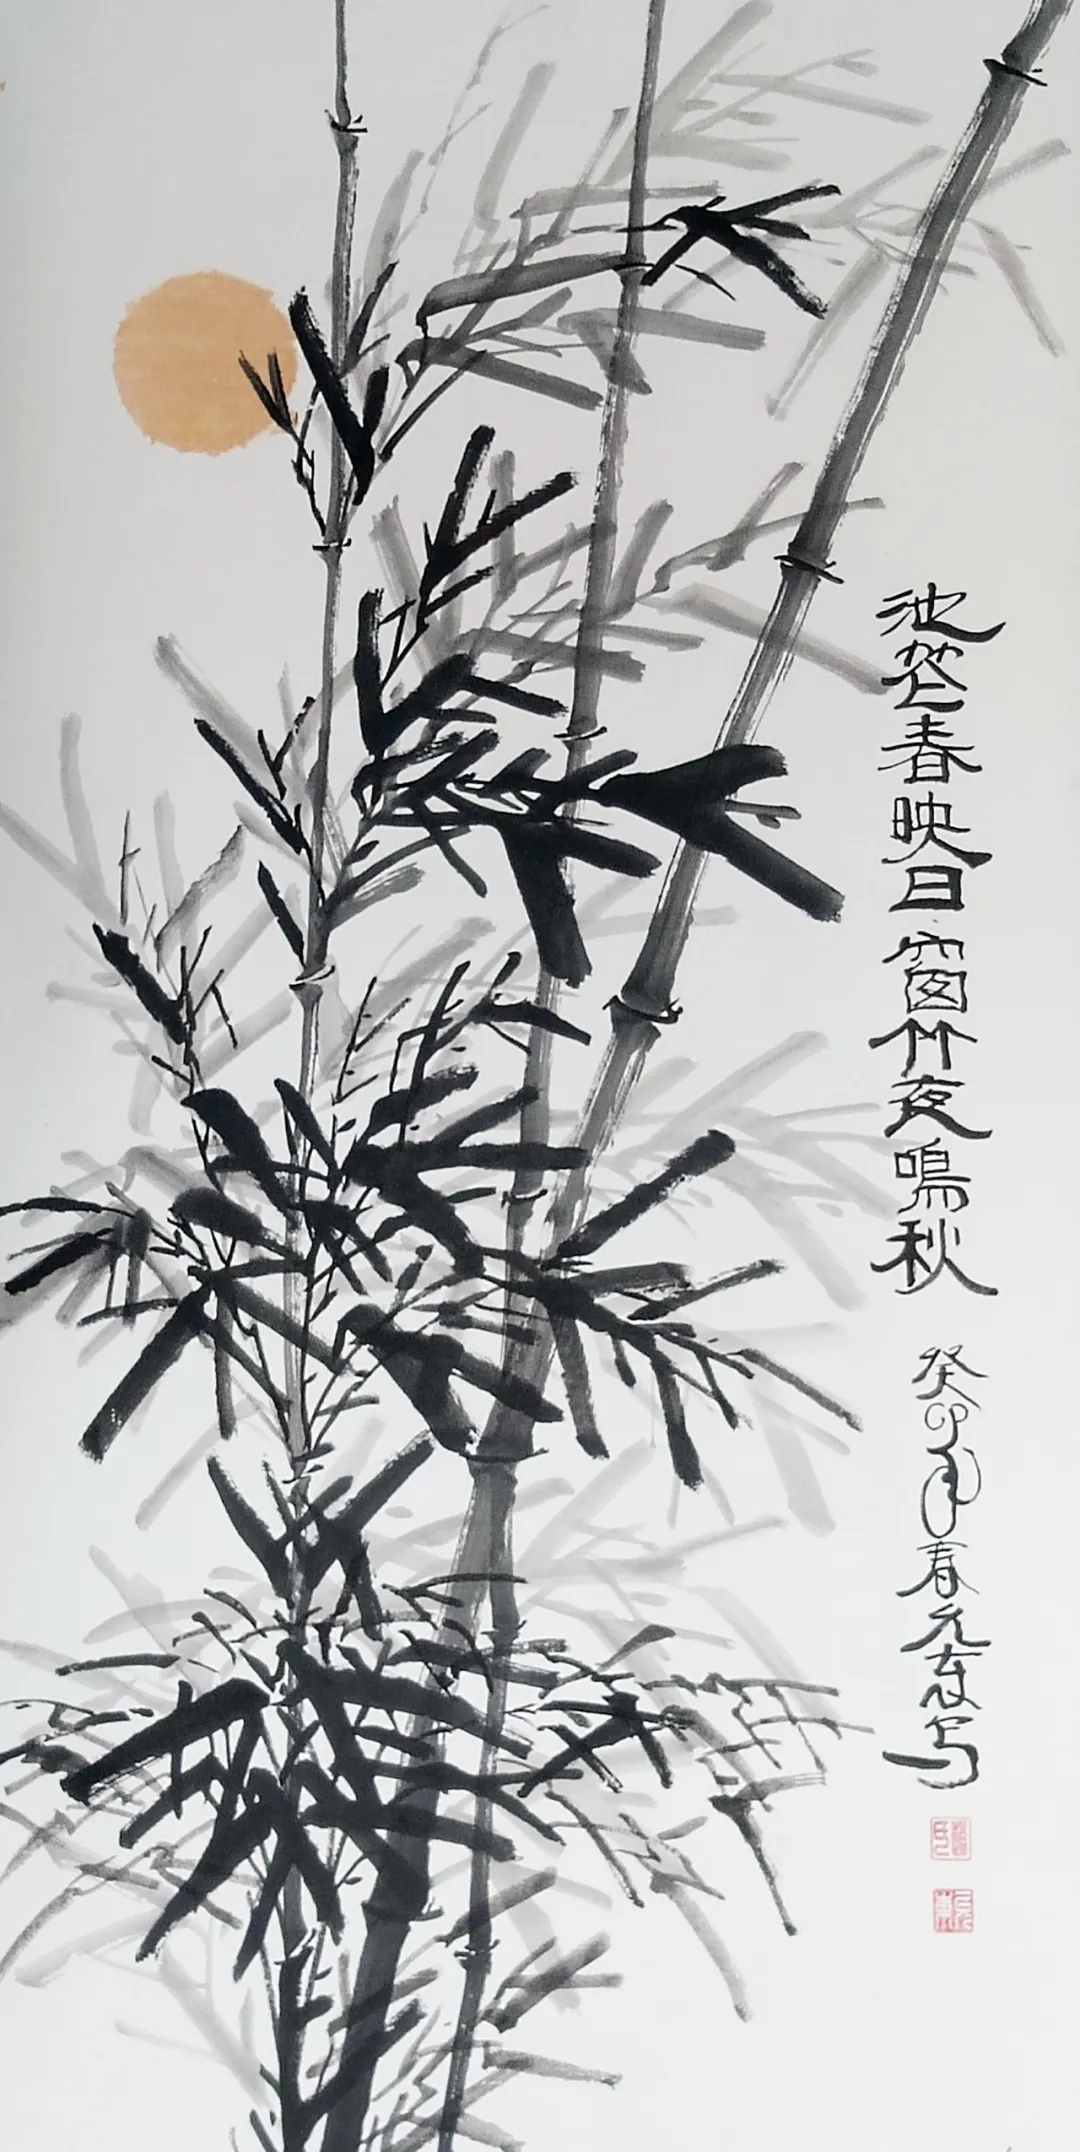 池花春映日窗竹夜鳴秋 癸卯年春元写